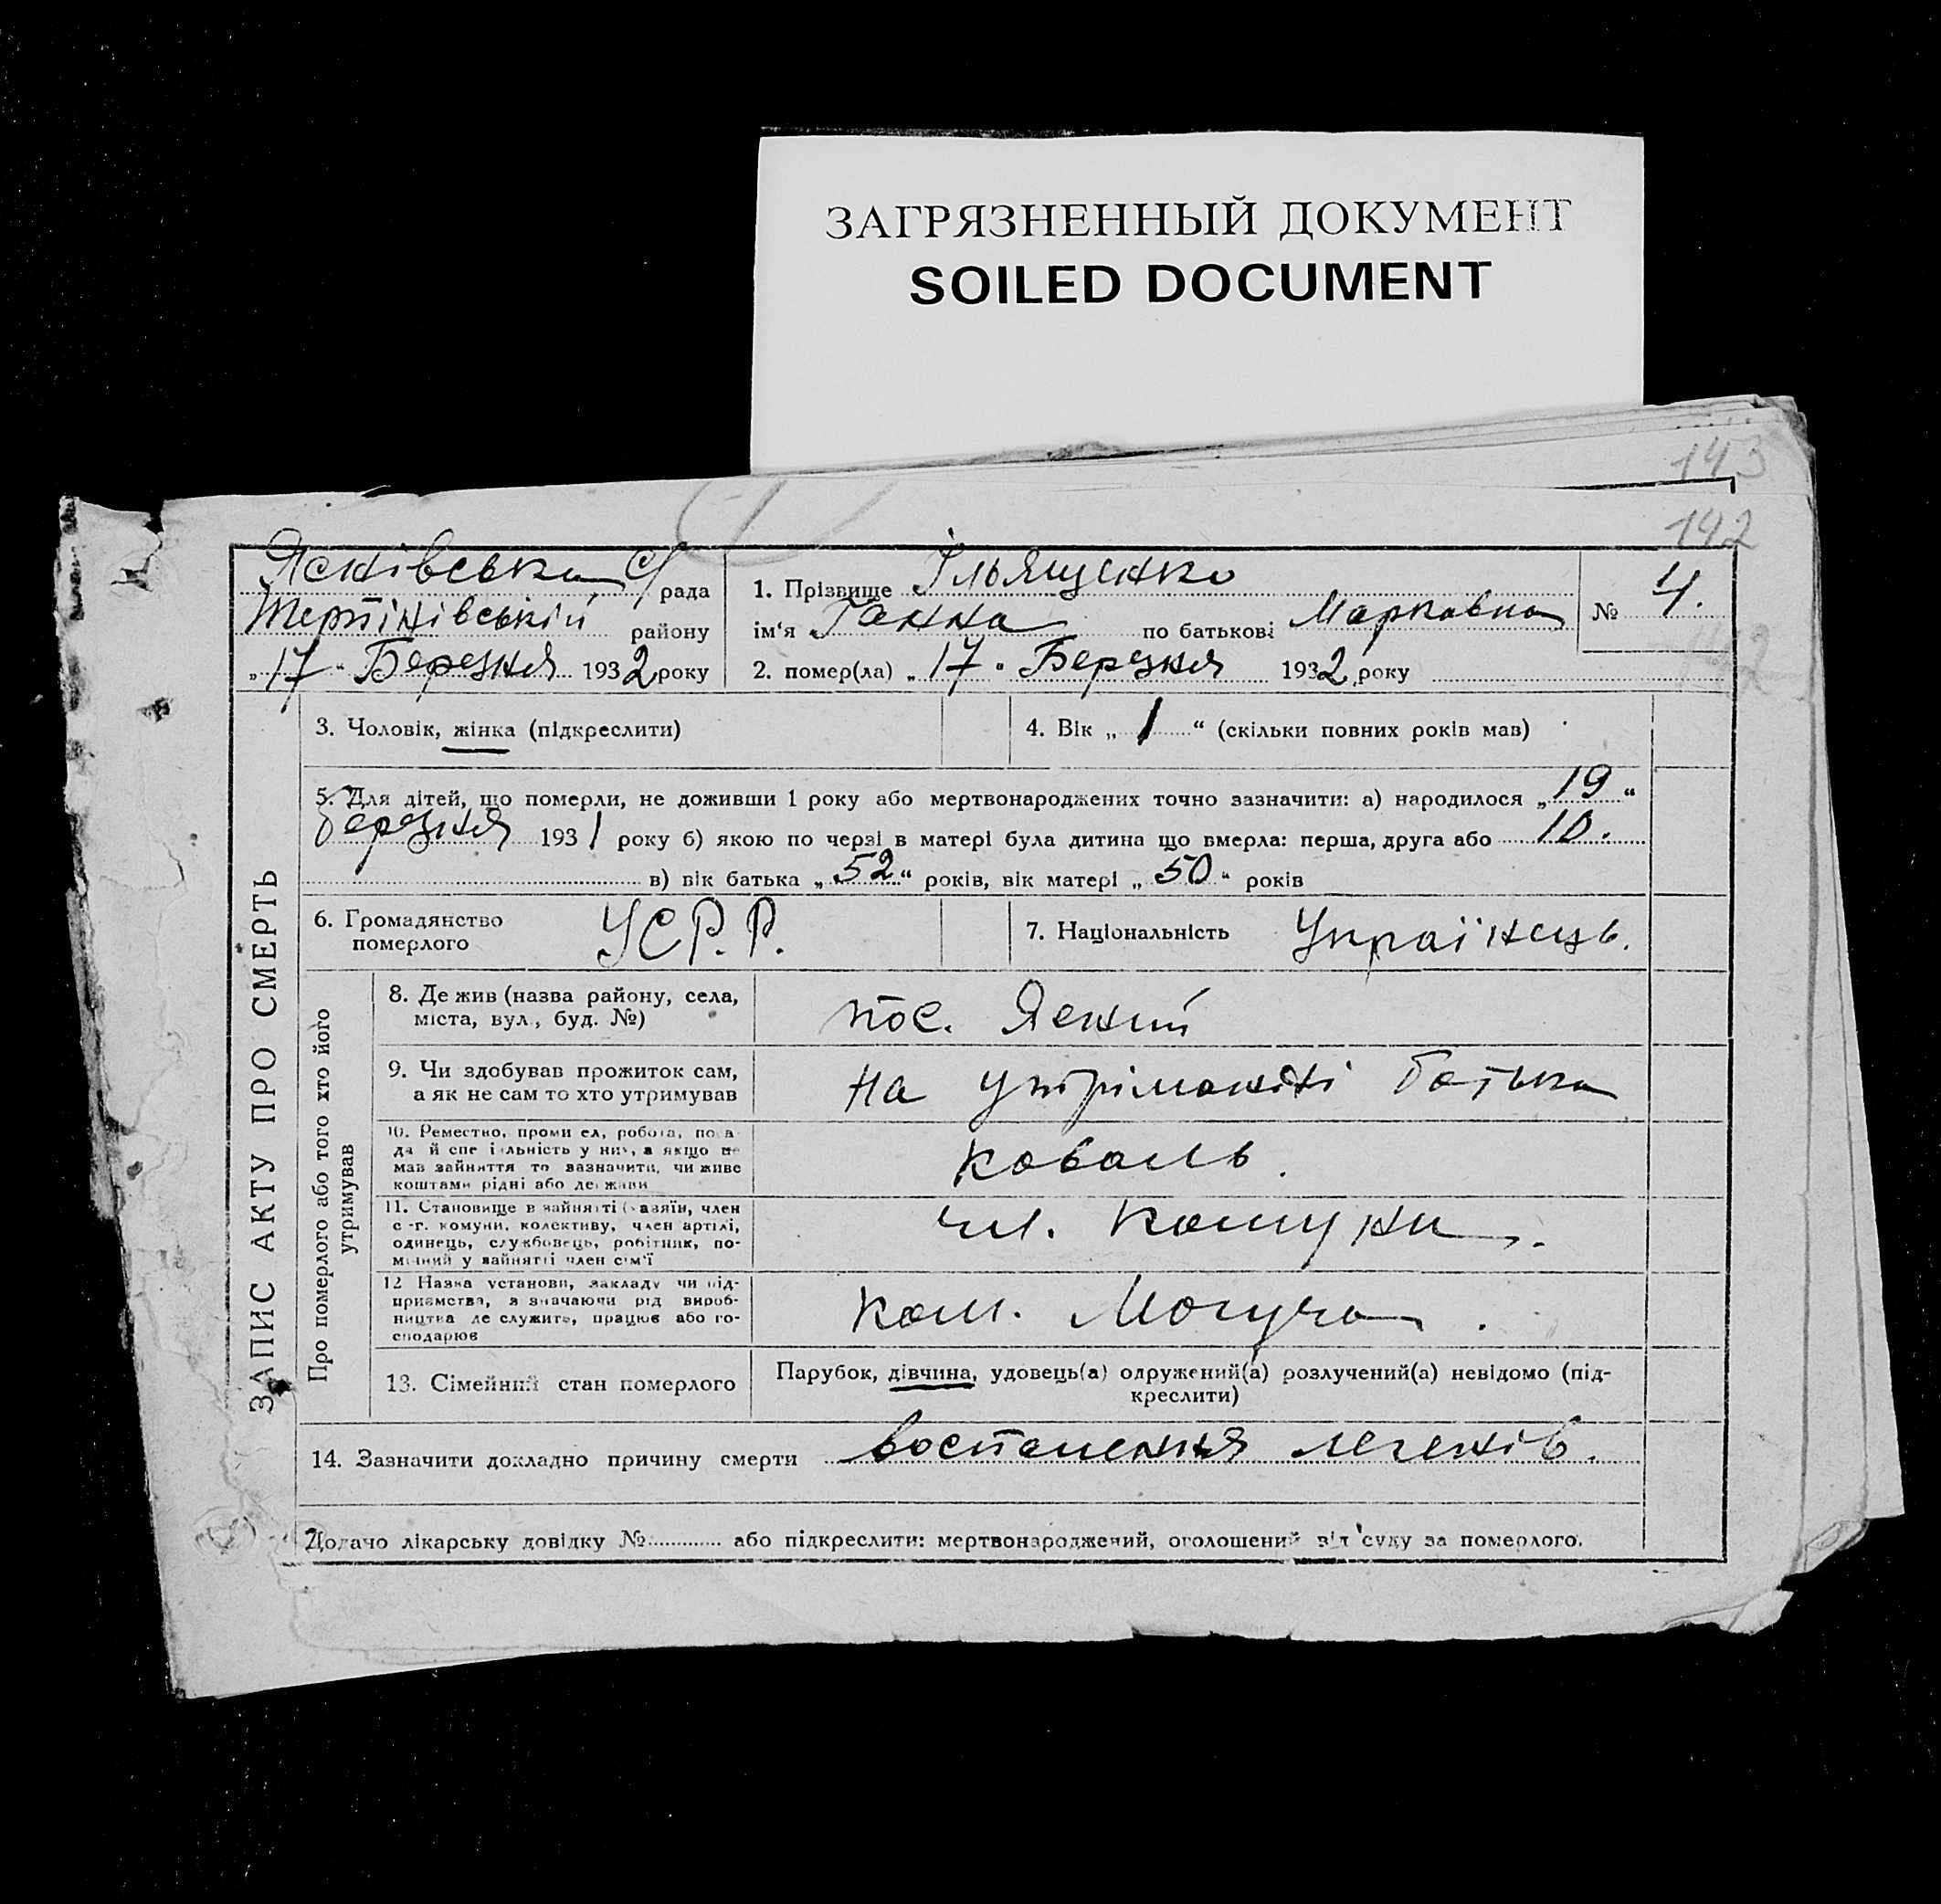 ЗАГРЯЗНЕННЫЙ ДОКУМЕНТ
SOILED DOCUMENT
143
142
Яснівська С/рада
Терпінівський району
„17“ Березня 1932 року
1. Прізвище Ільященко
ім‘я Ганна по батькові Марковна
2. помер(ла) „17. Березня 1932 року
№ 4.
ЗАПИС АКТУ ПРО СМЕРТЬ
3. Чоловік, жінка (підкреслити)
4. Вік „1“ (скільки повних років мав)
5. Для дітей, що померли, не доживши 1 року або мертвонароджених точно зазначити: а) народилося „19“
березня 1931 року б) якою по черзі в матері була дитина що вмерла: перша, друга або 10.
в) вік батька „52“ років, вік матері „50“ років
6. Громадянство
померлого
УСР.Р.
7. Національність Українець.
Про померлого або того хто його
утримував
8. Де жив (назва району, села,
міста, вул., буд. №)
пос. Ясний
9. Чи здобував прожиток сам,
а як не сам то хто утримував
На утріманні батька
10. Ремество, промисел, робота, поса-
да й спеціальність у них, а якщо не
мав зайняття то зазначити, чи живе
коштами рідні або держави
Коваль.
11. Становище в зайнятті (хазяїн, член
с.-г. комуни, колективу, член артілі,
одинець, службовець, робітник, по-
мічний у зайнятті член сім'ї
чл. Комуни.
12 Назва установи, закладу чи під-
приємства, зазначаючи рід вироб-
ництва де служить, працює або го-
сподарює
Ком. Могуча.
13. Сімейний стан померлого
Парубок, дівчина, удовець(а) одружений(а) розлучений(а) невідомо (під-
креслити)
14. Зазначити докладно причину смерти воспаления легенів.
Додано лікарську довідку № або підкреслити: мертвонароджений, оголошений від суду за померлого.